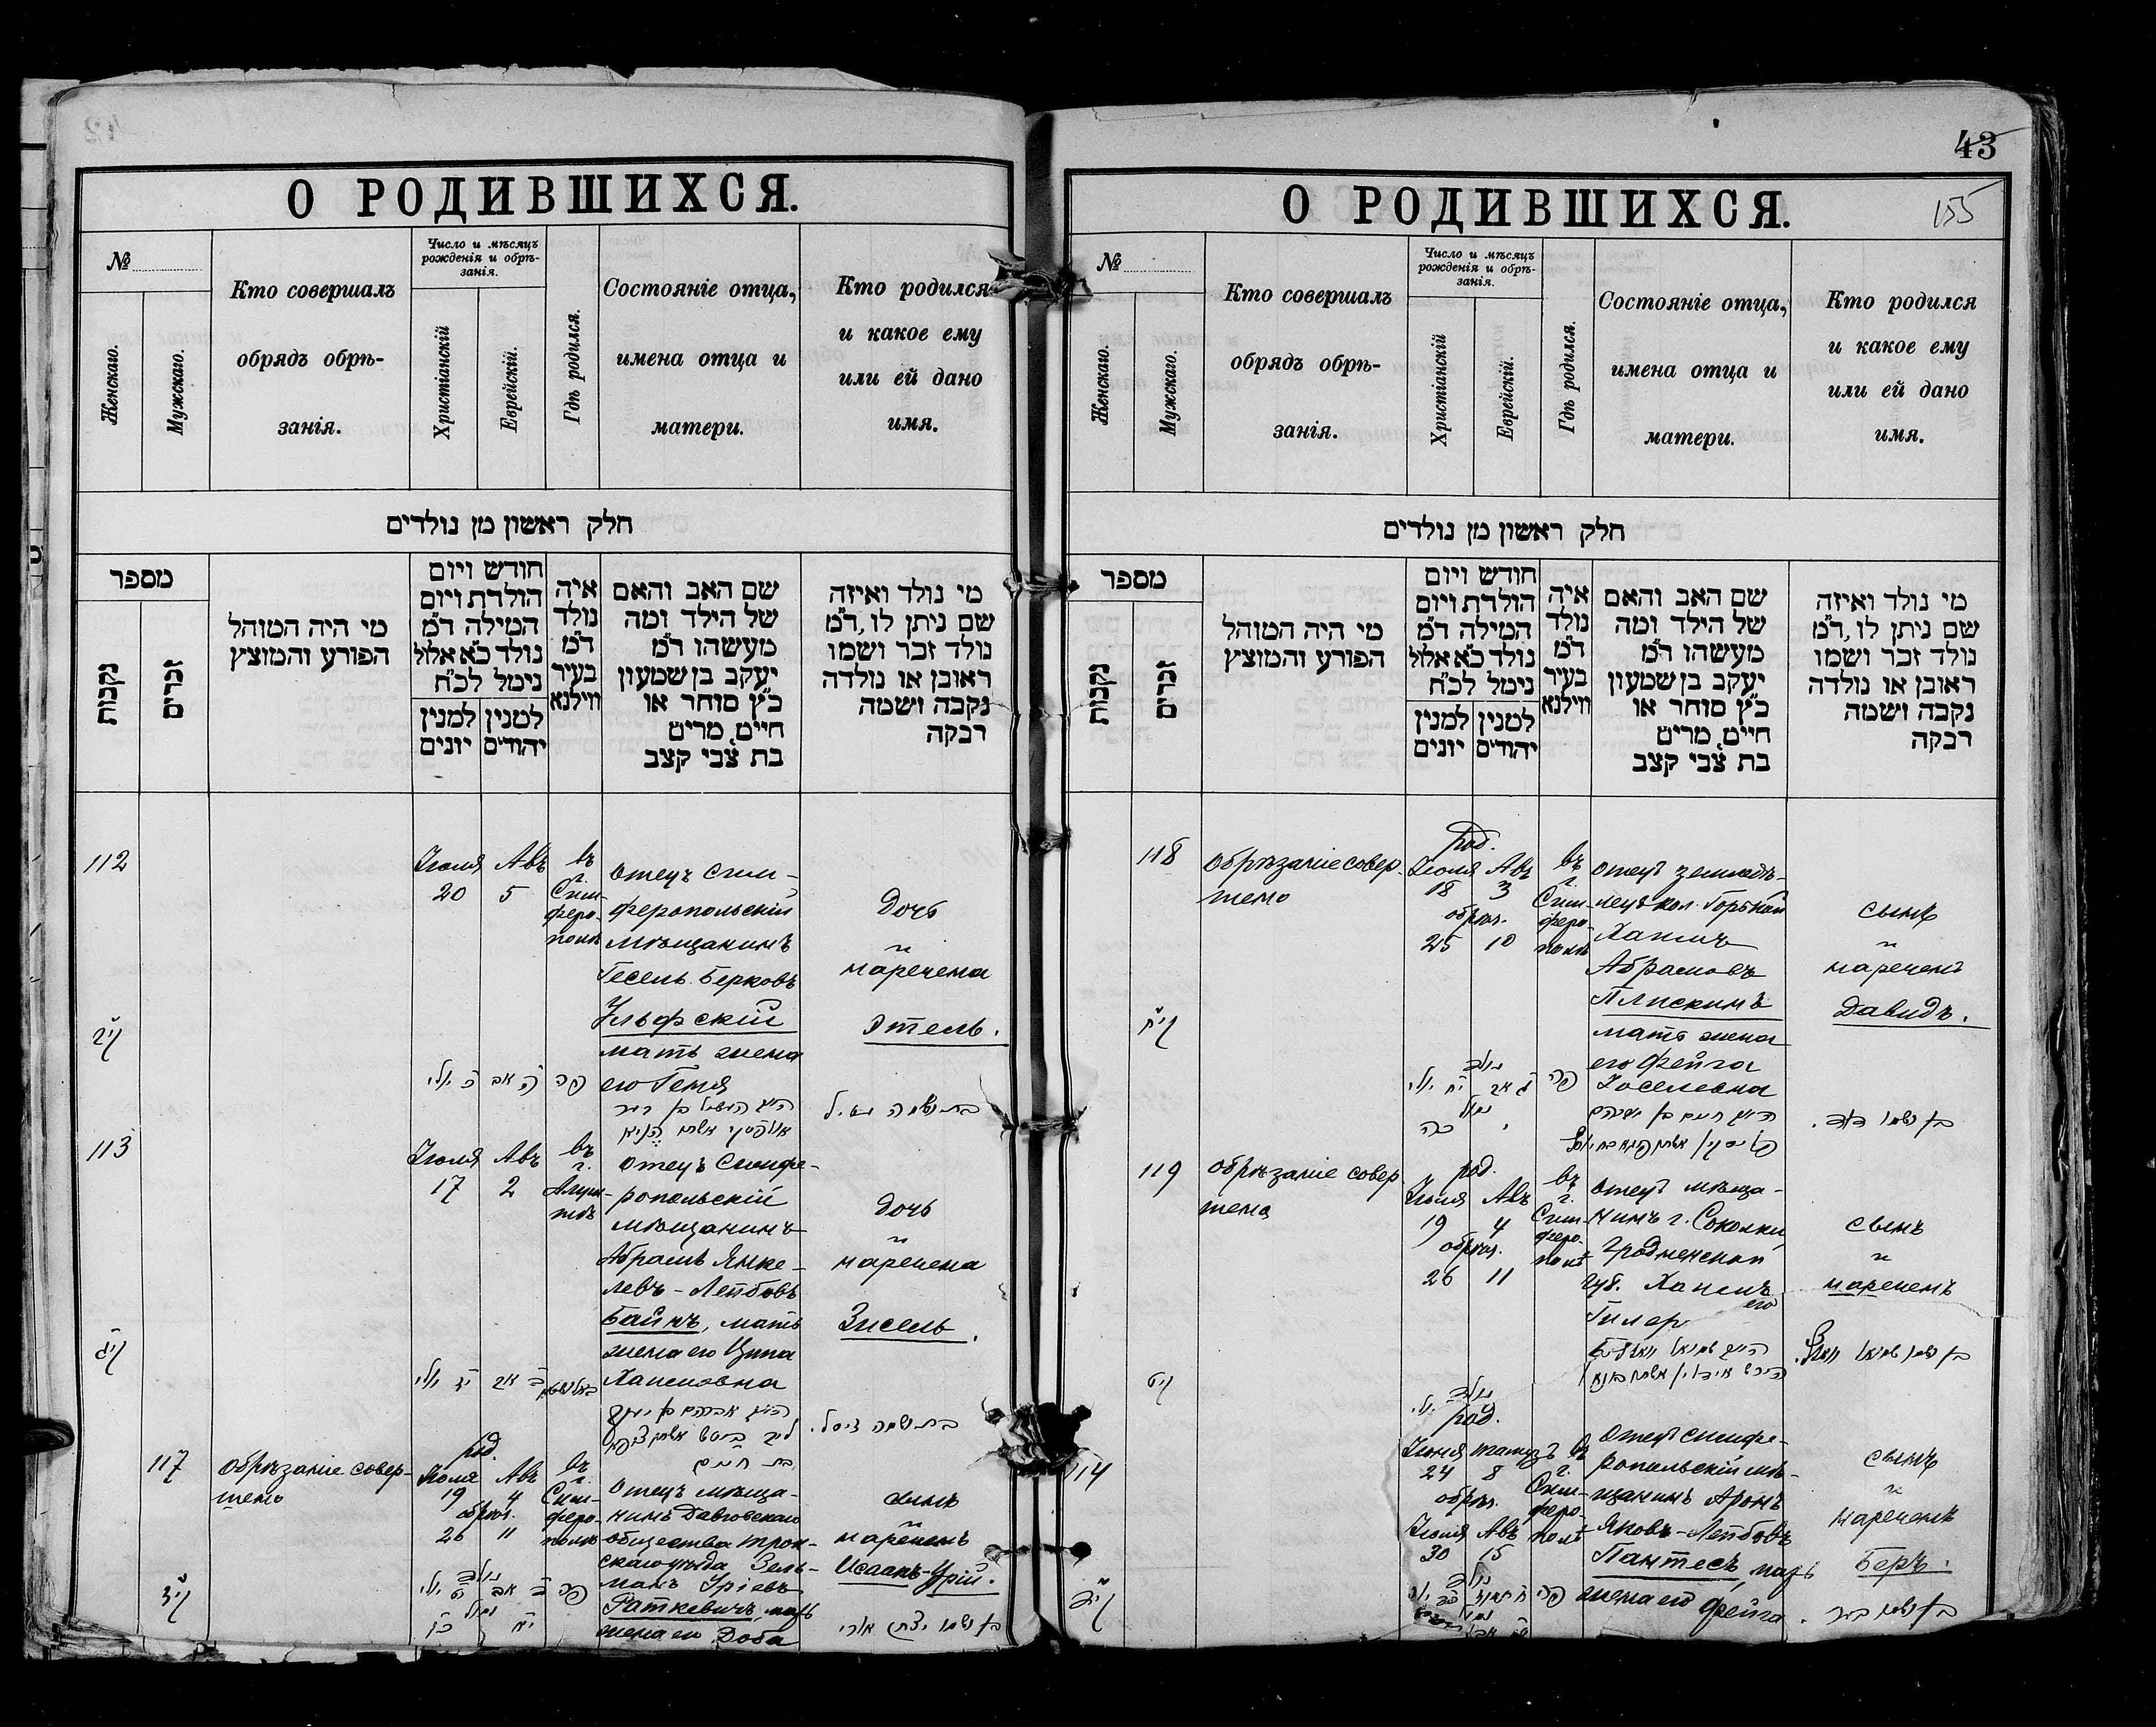 О РОДИВШИХСЯ.
№
Женскаго.
Мужскаго.
Кто совершалъ
обрядъ обрѣ-
занія.
Число и мѣсяцъ
рожденія и обрѣ-
занія.
Христіанскій
Еврейскій.
Гдѣ родился.
Состояніе отца,
имена отца и
матери.
Кто родился
и какое ему
или ей дано
имя.
חלק ראשון מן נולדים
מספר
נקבות
זכרים
מי היה המוהל
הפורע והמוצץ
חודש ויום
הולדת ויום
המילה ד״מ
נולד כ״א אלול
נימל לכ״ח
למנין יהודים
למנין יונים
איה
נולד
ד״מ
בעיר
ווילנא
שם האב והאם
של הילד ומה
מעשהו ד״מ
יעקב בן שמעון
כ״ץ סוחר או
חיים, מרים
בת צבי קצב
מי נולד ואיזה
שם ניתן לו, ד״מ
נולד זכר ושמו
ראובן או נולדה
נקבה ושמה
רבקה
112
Іюля Авъ
20 5
въ
г.
Сим-
феро-
полѣ
Отецъ Сим-
феропольскій
мѣщанинъ
Гесель Берковъ
Ульфскій
мать жена
его Геня
Дочь
наречена
Этель.
113
Іюля Авъ
17 2
въ
г.
Алуш-
тѣ
Отецъ Симфе-
ропольскій
мѣщанинъ
Абрамъ Янке-
левъ-Лейбовъ
Байнъ, мать
жена его Ципа
Хаимовна
Дочь
наречена
Зисель.
117
Обрѣзаніе совер-
шено
род.
Іюля Авъ
19 4
обрѣз.
26 11
въ
г.
Сим-
феро-
полѣ
Отецъ мѣща-
нинъ Давговскаго
общества Трок-
скаго уѣзда Зель-
манъ Уріевъ
Раткевичъ, мать
жена его Доба
сынъ
нареченъ
Исаакъ-Урій.
בן ושמו יצחק אורי
43
155
О РОДИВШИХСЯ.
№
Женскаго.
Мужскаго.
Кто совершалъ
обрядъ обрѣ-
занія.
Число и мѣсяцъ
рожденія и обрѣ-
занія.
Христіанскій
Еврейскій.
Гдѣ родился.
Состояніе отца,
имена отца и
матери.
Кто родился
и какое ему
или ей дано
имя.
חלק ראשון מן נולדים
מספר
נקבות
זכרים
מי היה המוהל
הפורע והמוצץ
חודש ויום
הולדת ויום
המילה ד״מ
נולד כ״א אלול
נימל לכ״ח
למנין יהודים
למנין יונים
איה
נולד
ד״מ
בעיר
ווילנא
שם האב והאם
של הילד ומה
מעשהו ד״מ
יעקב בן שמעון
כ״ץ סוחר או
חיים, מרים
בת צבי קצב
מי נולד ואיזה
שם ניתן לו, ד״מ
נולד זכר ושמו
ראובן או נולדה
נקבה ושמה
רבקה
118
Обрѣзаніе совер-
шено
род.
Іюля Авъ
18 3
обрѣз.
25 10
въ
г.
Сим-
феро-
полѣ
Отецъ земледѣ-
лецъ кол. Горькой
Хаимъ
Абрамовъ
Плискинъ
мать жена
его Фейга
Іоселевна
сынъ
нареченъ
Давидъ.
בן ושמו דוד.
119
Обрѣзаніе совер
шено
род.
Іюля Авъ
19 4
обрѣз.
26 11
въ
г.
Сим-
феро-
полѣ
Отецъ мѣща-
нинъ г. Соколки
Гродненской
губ.
сынъ
нареченъ
114
род.
Іюня тамузъ
24 8
обрѣз.
Іюля Авъ
30 15
въ
г.
Сим-
феро-
полѣ
Отецъ Симфе-
ропольскій мѣ-
щанинъ Аронъ
Яковъ-Лейбовъ
Пантесъ, мать
жена его Фейга.
сынъ
нареченъ
Беръ.
בן ושמו בער